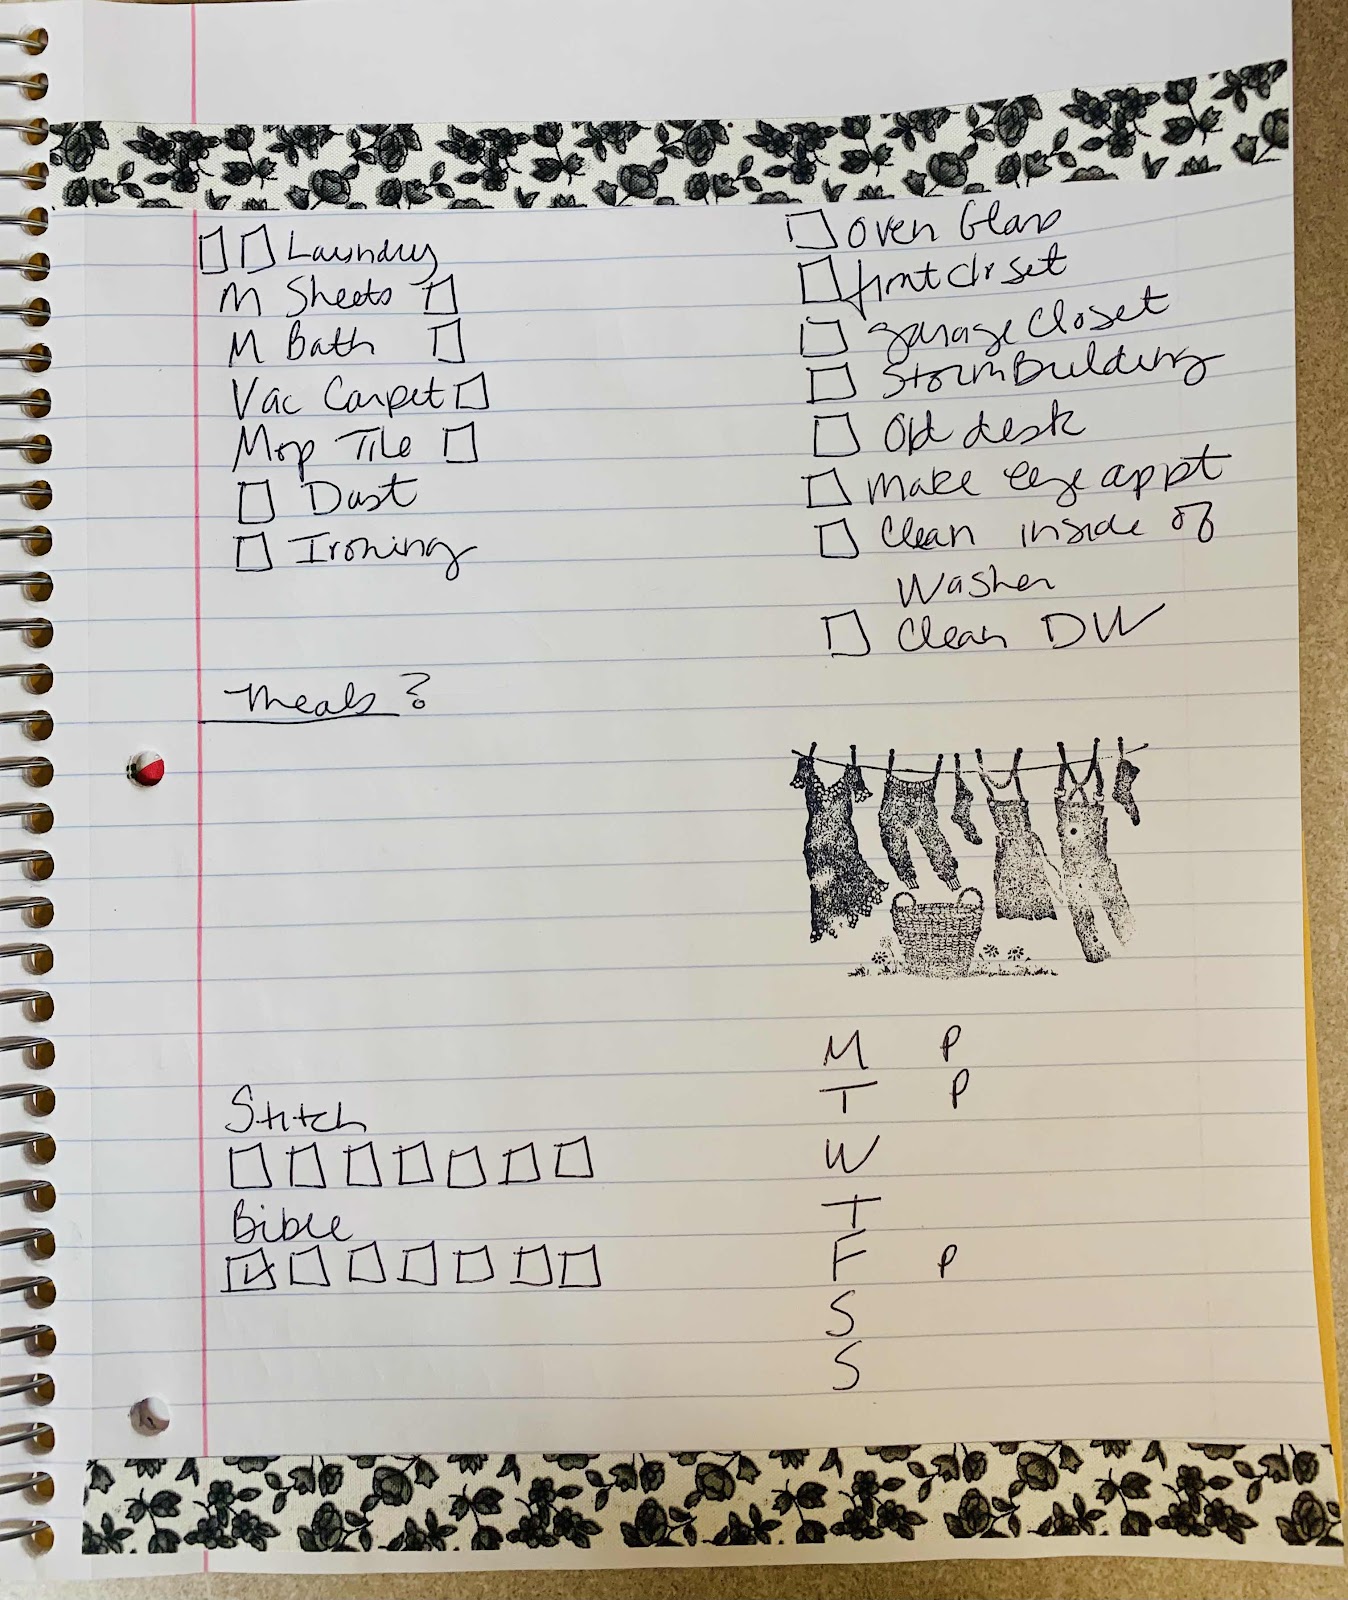 Laundry
M Sheets
M Bath
Vac Carpet
Mop Tile
Dust
Ironing
Oven Glass
front closet
garage closet
Storm Building
Old desk
make eye appt
Clean inside of
Washer
Clean DW
Meals?
Stitch
Bible
M P
T P
W
T
F P
S
S